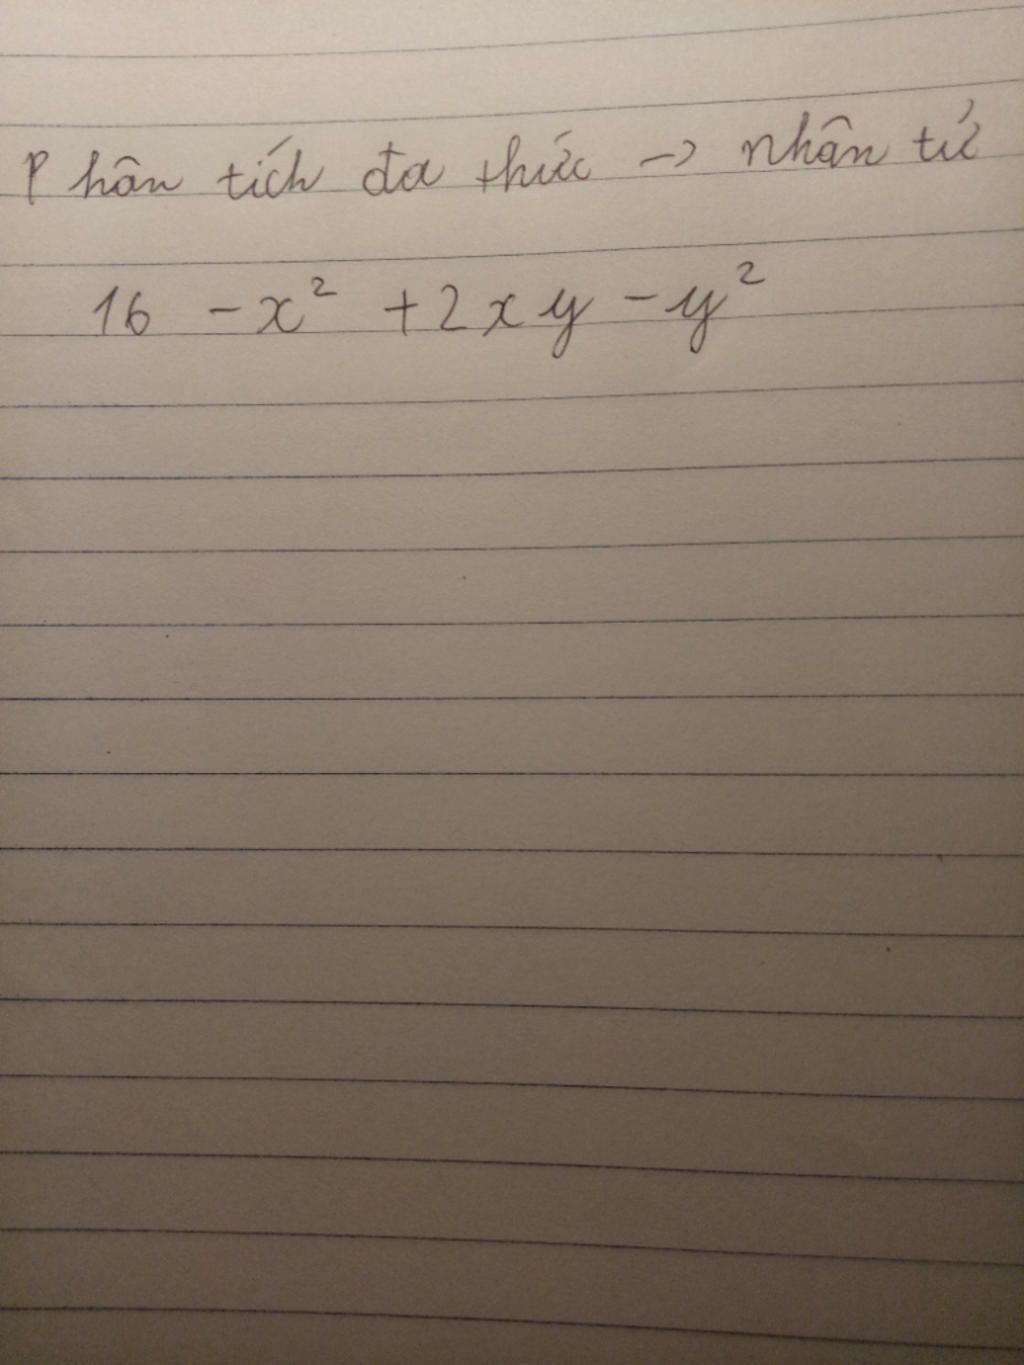 Phân tích đa thức -> nhân tử
16 - x² + 2xy - y²